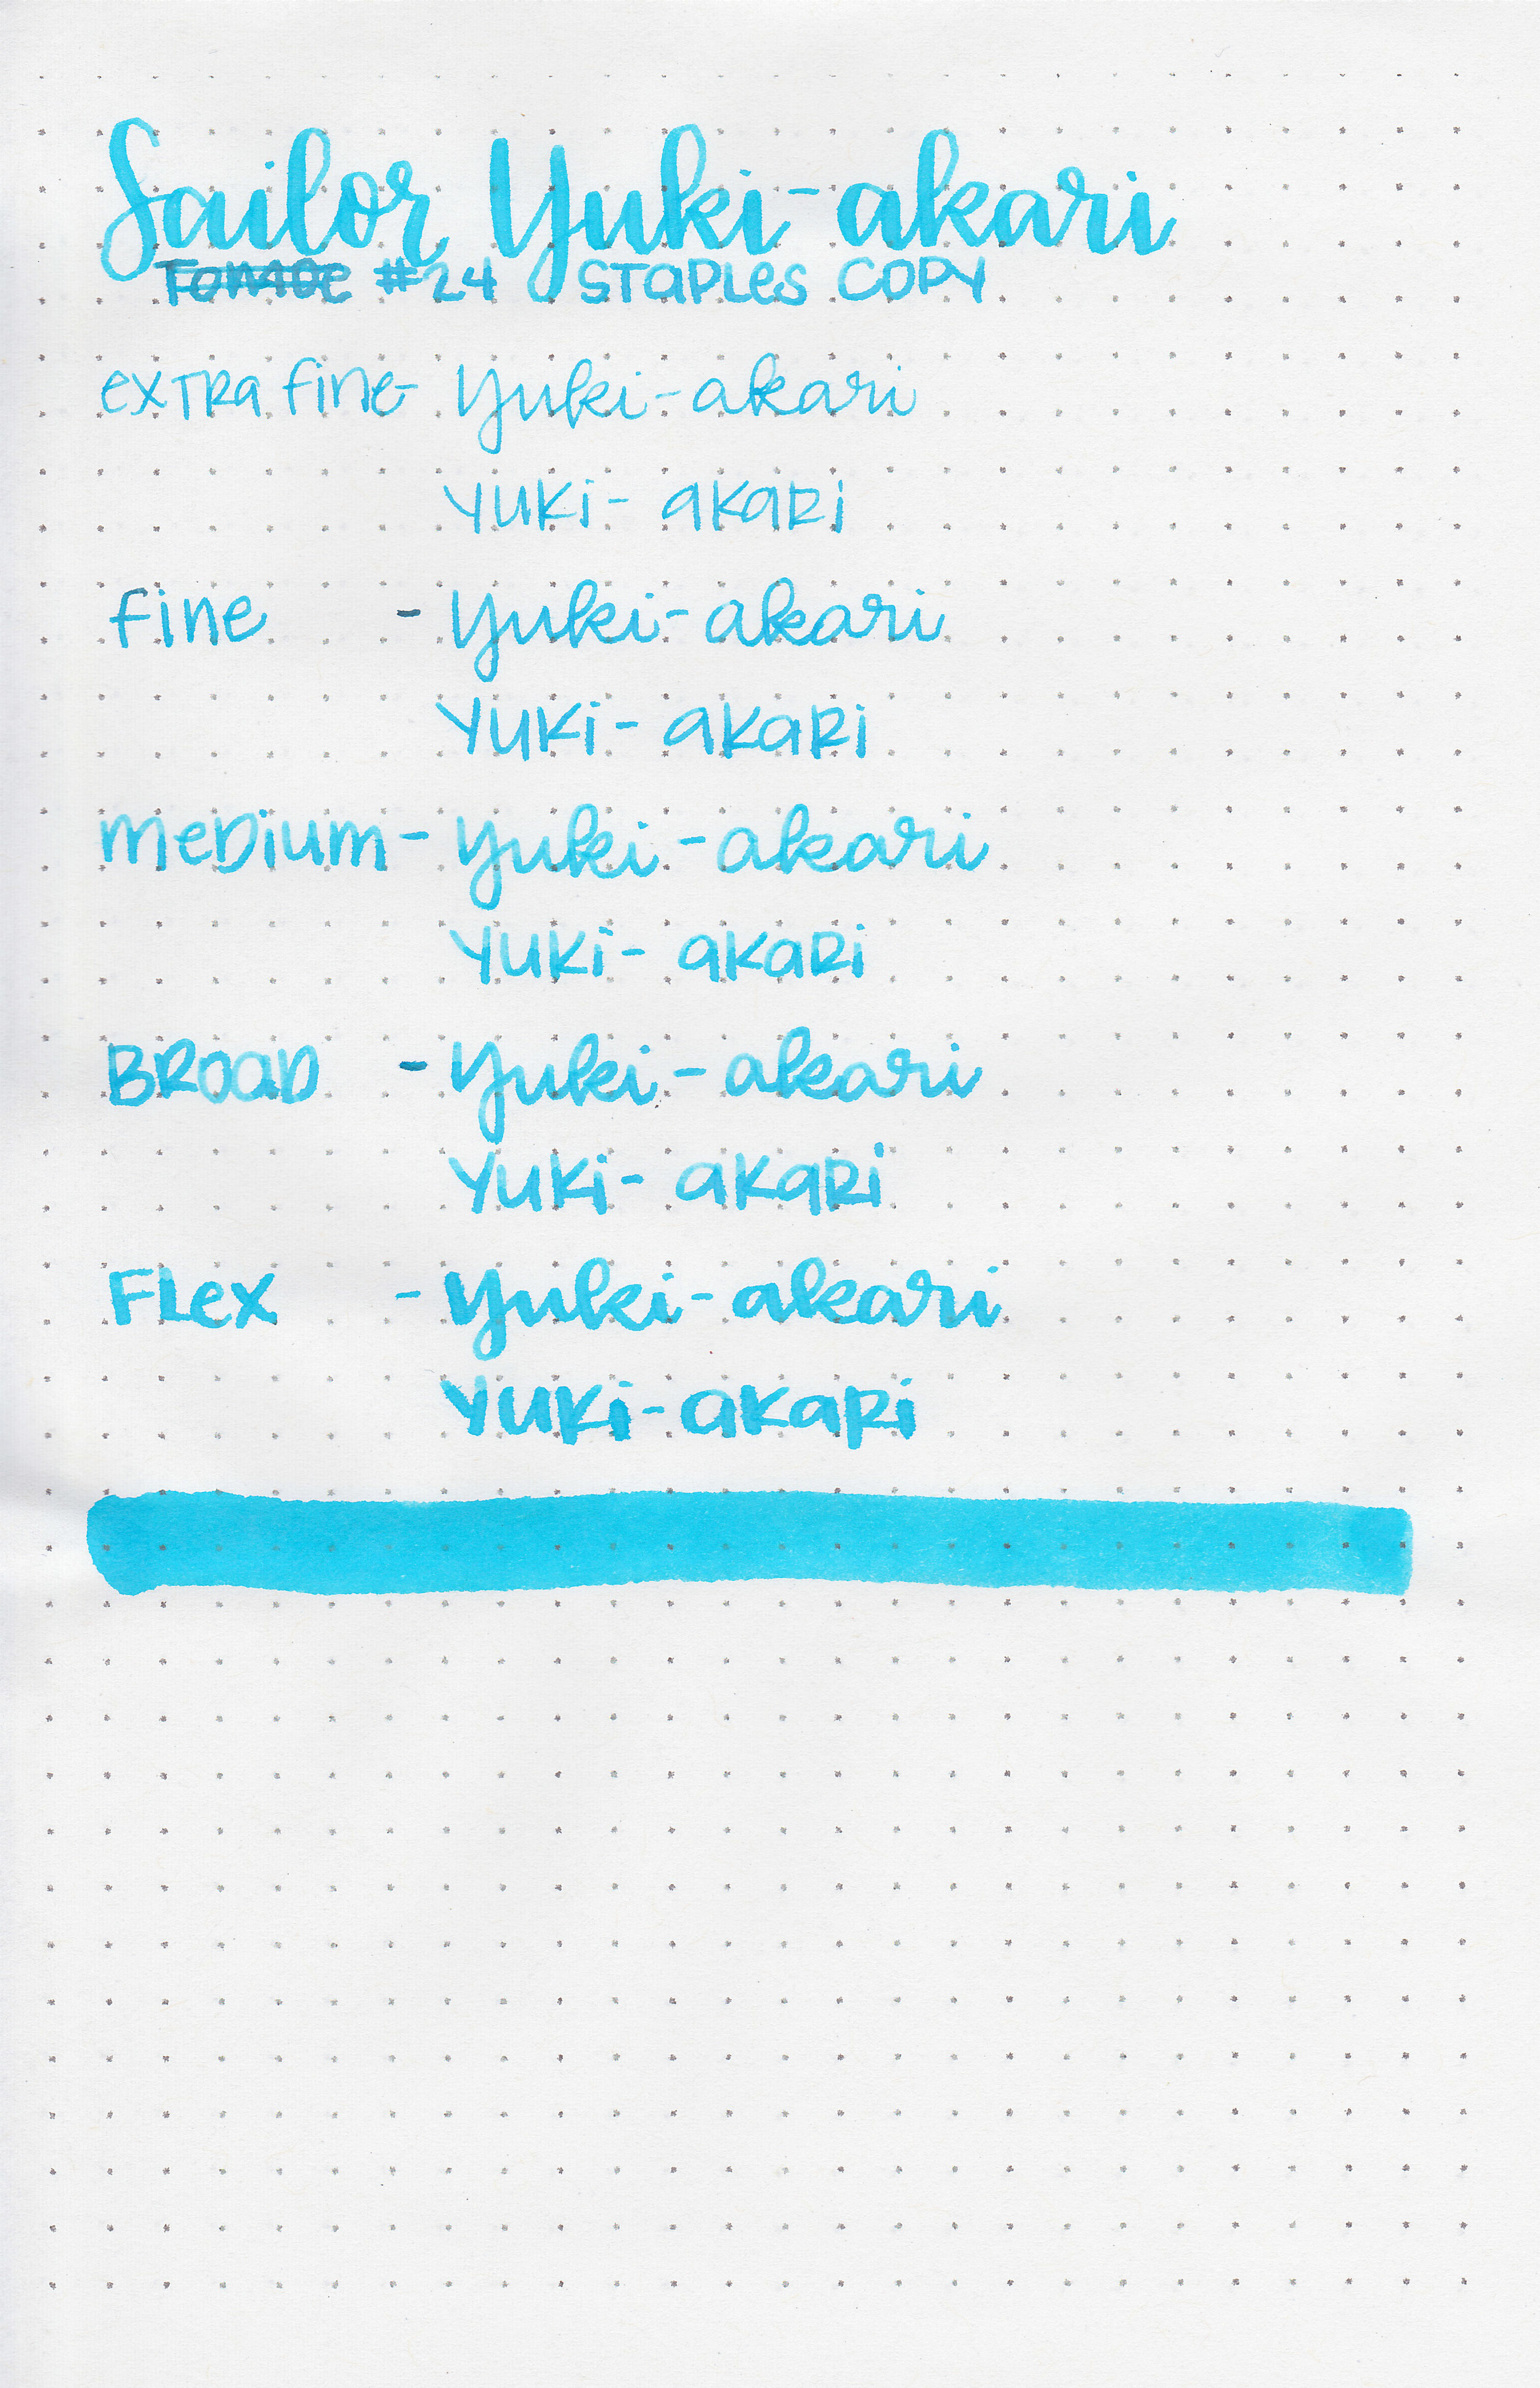 Sailor Yuki-akari
Tomoe #24 STAPLes COPY
exTRa fine- Yuki-akari
YUKi- aKaRi
fine - Yuki-akari
YUKi- aKaRi
meDium - Yuki-akari
YUKi- aKaRi
BROaD - Yuki-akari
YUKi- aKaRi
FLex - Yuki-akari
YUKi-aKaRi